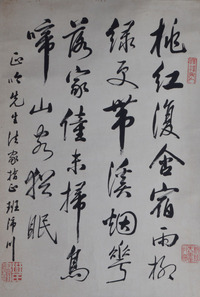 桃红復含宿雨柳
绿更带溪烟華
落家僮未掃鳥
啼山客猶眠
正吟先生法家指正 班川